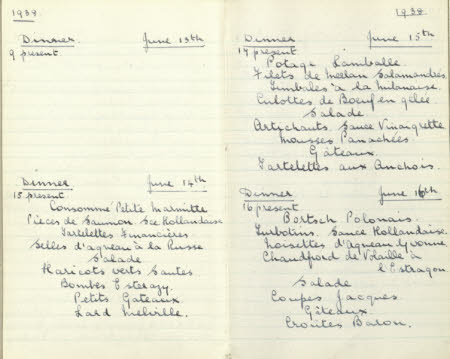 1939
Dinner June 13th
9 present.
Dinner June 14th
15 present
Consommé Petite Marmitte
Pièces de Saumon Sce Hollandaise
Tartelettes Financières
Selles d'agneau à la Russe
Salade
Haricots verts Sautés
Bombes Esterazy.
Petits Gateaux
Lard Melville.
1938
Dinner June 15th
17 present
Potage Lamballe
Filets de Merlan Salamandres
Timbales à la Milanaise
Culottes de Boeuf en gêlée
Salade
Artychauts Sauce Vinaigrette
Mousses Panachées
Gâteaux
Tartelettes aux Anchois.
Dinner June 16th
16 present
Bortsch Polonais.
Turbotins. Sauce Hollandaise.
Noisettes d'Agneau Yvonne.
Chaudfroid de Volaille à
l'Estragon.
Salade
Coupes Jacques
Gâteaux
Croûtes Baron.